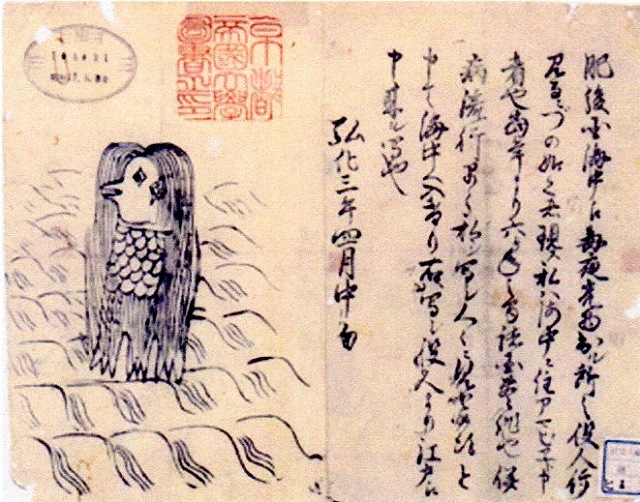 京都
帝國大學
圖書之印
肥後国海中え毎夜光物出ル所之役人行
見るニづの如く者現ス私ハ海中ニ住アマビヱト申
者也当年より六ヶ年之間諸国豊作也併
病流行早々私シ写シ人々ニ見セ候得と
申て海中へ入けり右写シ役人より江戸え
申来ル写也
弘化三年四月中旬